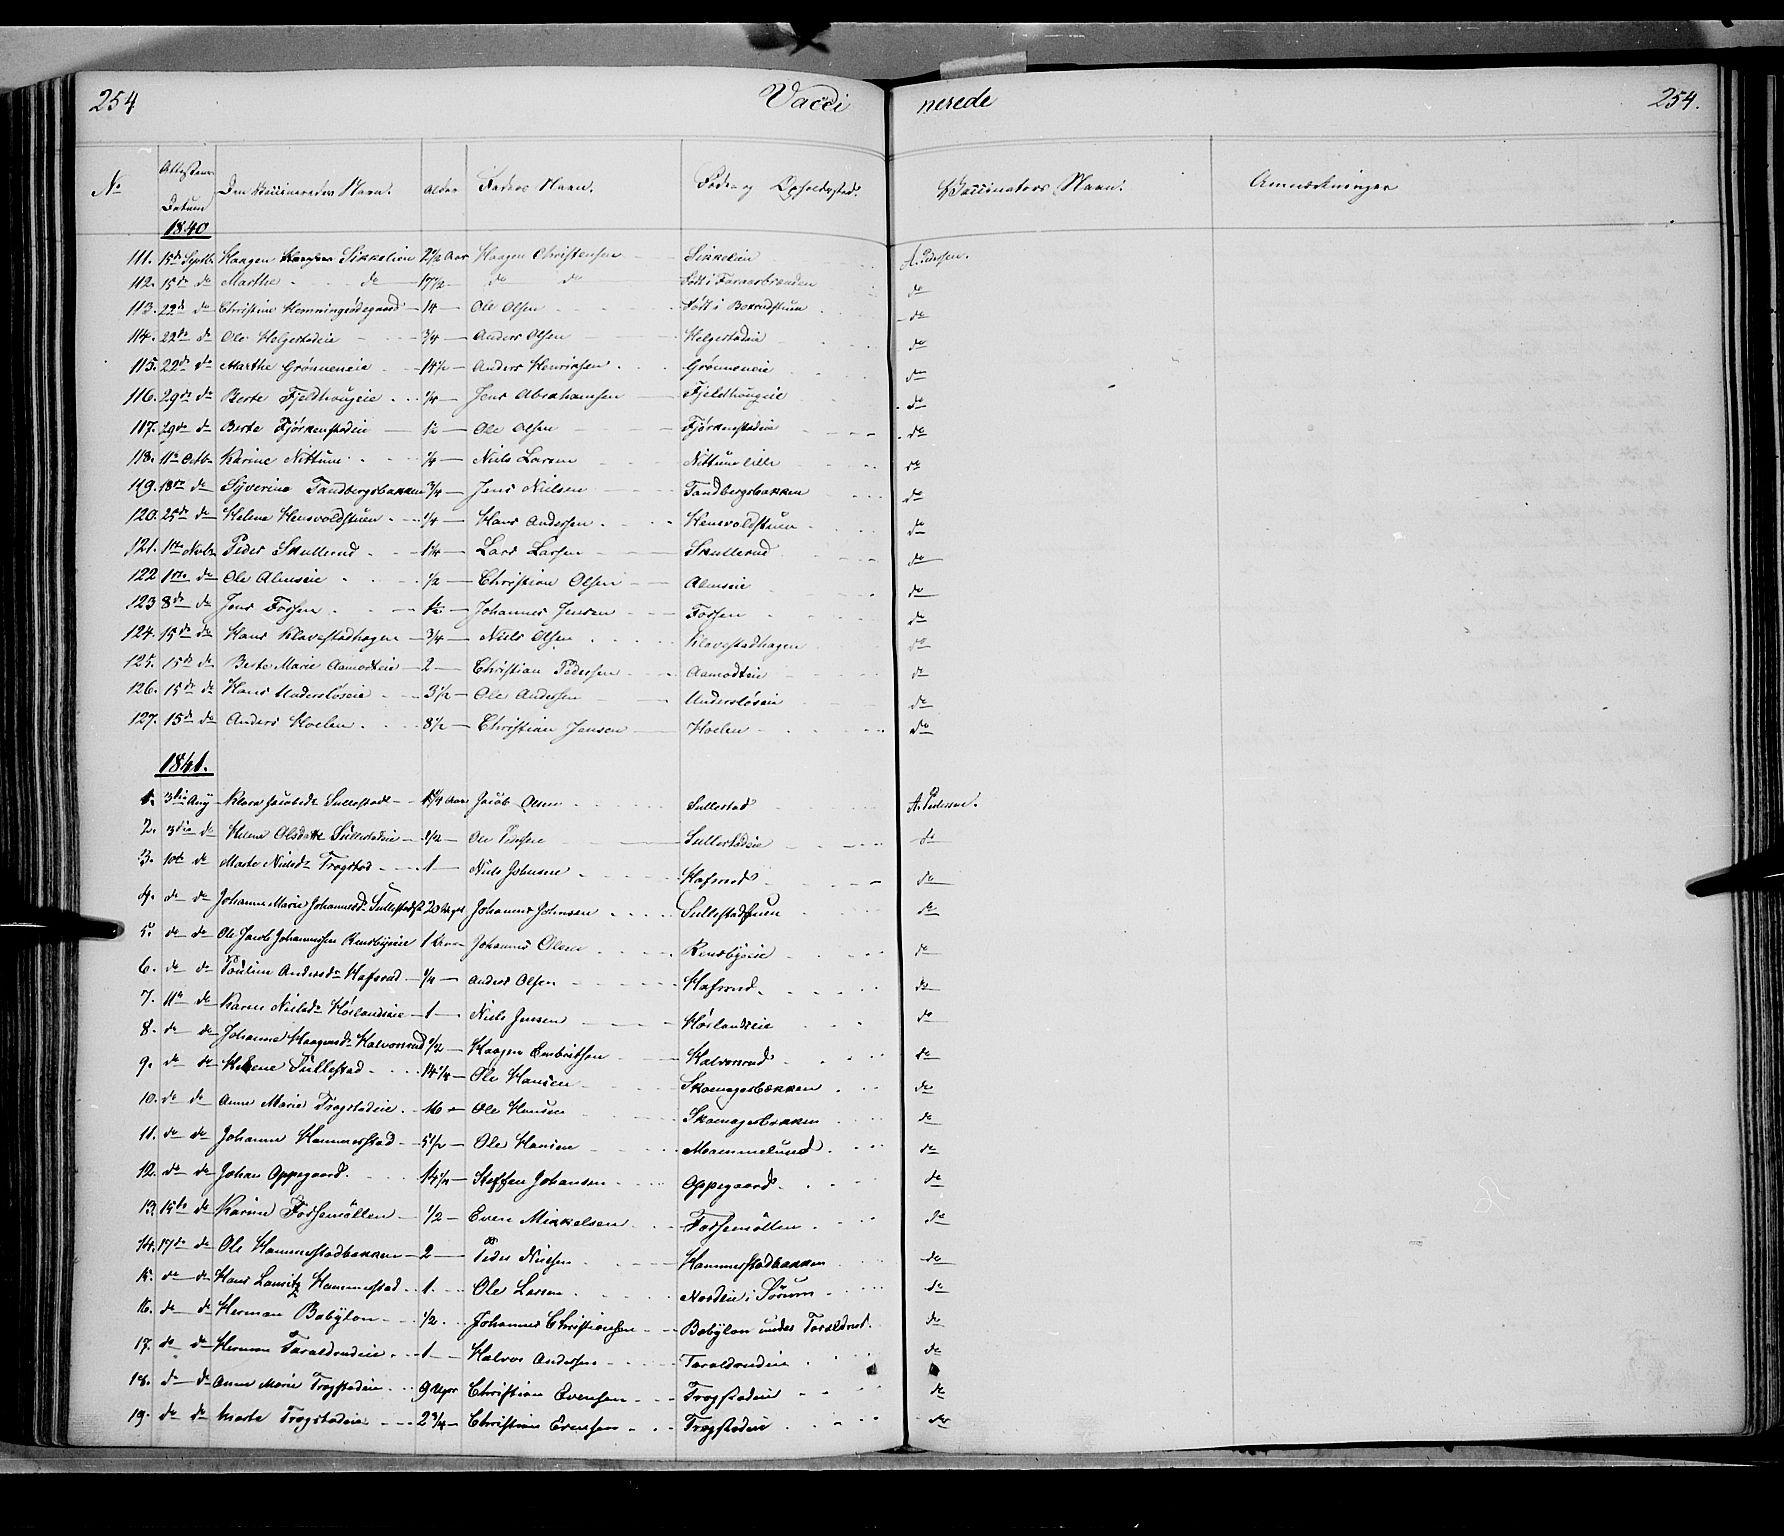 254 Vacci nerede 254.
No Attestens Datum Den Vaccineredes Navn. Alder Faders Navn. Føde- og Opholdssted. Vaccinators Navn. Anmærkninger
1840
111. 15de Septb. Haagen Sikkelien 2½ Aar Haagen Christensen Sikkelien A. Pedersen.
112. 15de do Marthe do 17½ do do Født i do
113. 22de do Christine Hemningsødegaard 14 Ole Olsen Født i do
114. 22de do Ole Helgestadeie ¾ Anders Olsen Helgestadeie do
115. 22de do Marthe Grønneneie Anders Henriksen Grønneneie do
116. 29de do Berte Fjeldhougeie ¼ Jens Abrahamsen Fjeldhougeie do
117. 29de do Berte Fjørkenstadeie ½ Ole Olsen Fjørkenstadeie do
118. 11te Octb. Karine Nittune ¼ Niels Larsen Nittune lille do
119. 18de do Syverine Tandbergsbakken ¾ Jens Nielsen Tandbergsbakken do
120. 25de do Helene Hensvoldstuen ¼ Hans Andersen Hensvoldstuen do
121. 1ste Novbr Peder Skullerud 1¼ Lars Larsen Skullerud do
122 1ste do Ole Almseie ½ Christian Olsen Almseie do
123 8de do Jens Fossen Johannes Jensen Fossen do
124. 15de do Hans Klavestadhagen ¾ Niels Olsen Klavestadhagen do
125. 15de do Berte Marie Aamodteie 2 Christian Pedersen Aamodteie do
126. 15de do Hans Undersløseie 3½ Ole Andersen Undersløseie do
127. 15de do Anders Hoelen 8½ Christian Jensen Hoelen do
1841.
1. 3die Aug Jacobsdr Sullestad Aar Jacob Olsen Sullestad A. Pedersen.
2. 3die do Helene Olsdatr Sullestadeie ½ Ole Sullestadeie do
3. 10de do Marte Nielsdr Trogstad 1 Niels Johnsen Hafsrud do
4. do do Johanne Marie Johannesdr Sullestadst 2 Uger Johannes Johnsen Sullestadstuen do
5. do do Ole Jacob Johannessen Rensbyeie 1 Aar Johannes Olsen Rensbyeie do
6. do do Pouline Andersdr Hafsrud ¼ Anders Olsen Hafsrud do
7. 11te do Karen Nielsdr Hørlandseie 1 Niels Jensen Hørlandseie do
8. do do Johanne Haagensdr Halvorsrud ½ Haagen Embretsen Halvorsrud do
9. do do Helene Sullestad 14¼ Ole Hansen Skomagerbakken do
10. do do Anne Marie Trogstadeie 16 Ole Hansen Skomagerbakken do
11. do do Johanne Hammerstad 5½ Ole Hansen Mammelund do
12. do do Johan Oppegaard 14¼ Steffen Johansen Oppegaard do
13. 15de do Karine Fossemöllen ½ Even Mikkelsen Fossemöllen do
14. 17de do Ole Hammerstadbakken 2 Peder Nielsen Hammerstadbakken do
15. do do Hans Lauritz Hammerstad 1 Ole Larsen Nordeie i Sørum do
16. do do Herman Babylon ½ Johannes Christiansen Babylon under Taraldrud do
17. do do Herman Taraldrudeie 1 Halvor Andersen Taraldrudeie do
18. do do Anne Marie Trogstadeie 9 Uger Christian Evensen Trogstadeie do
19. do do Marte Trogstadeie 2¾ Christian Evensen Trogstadeie do